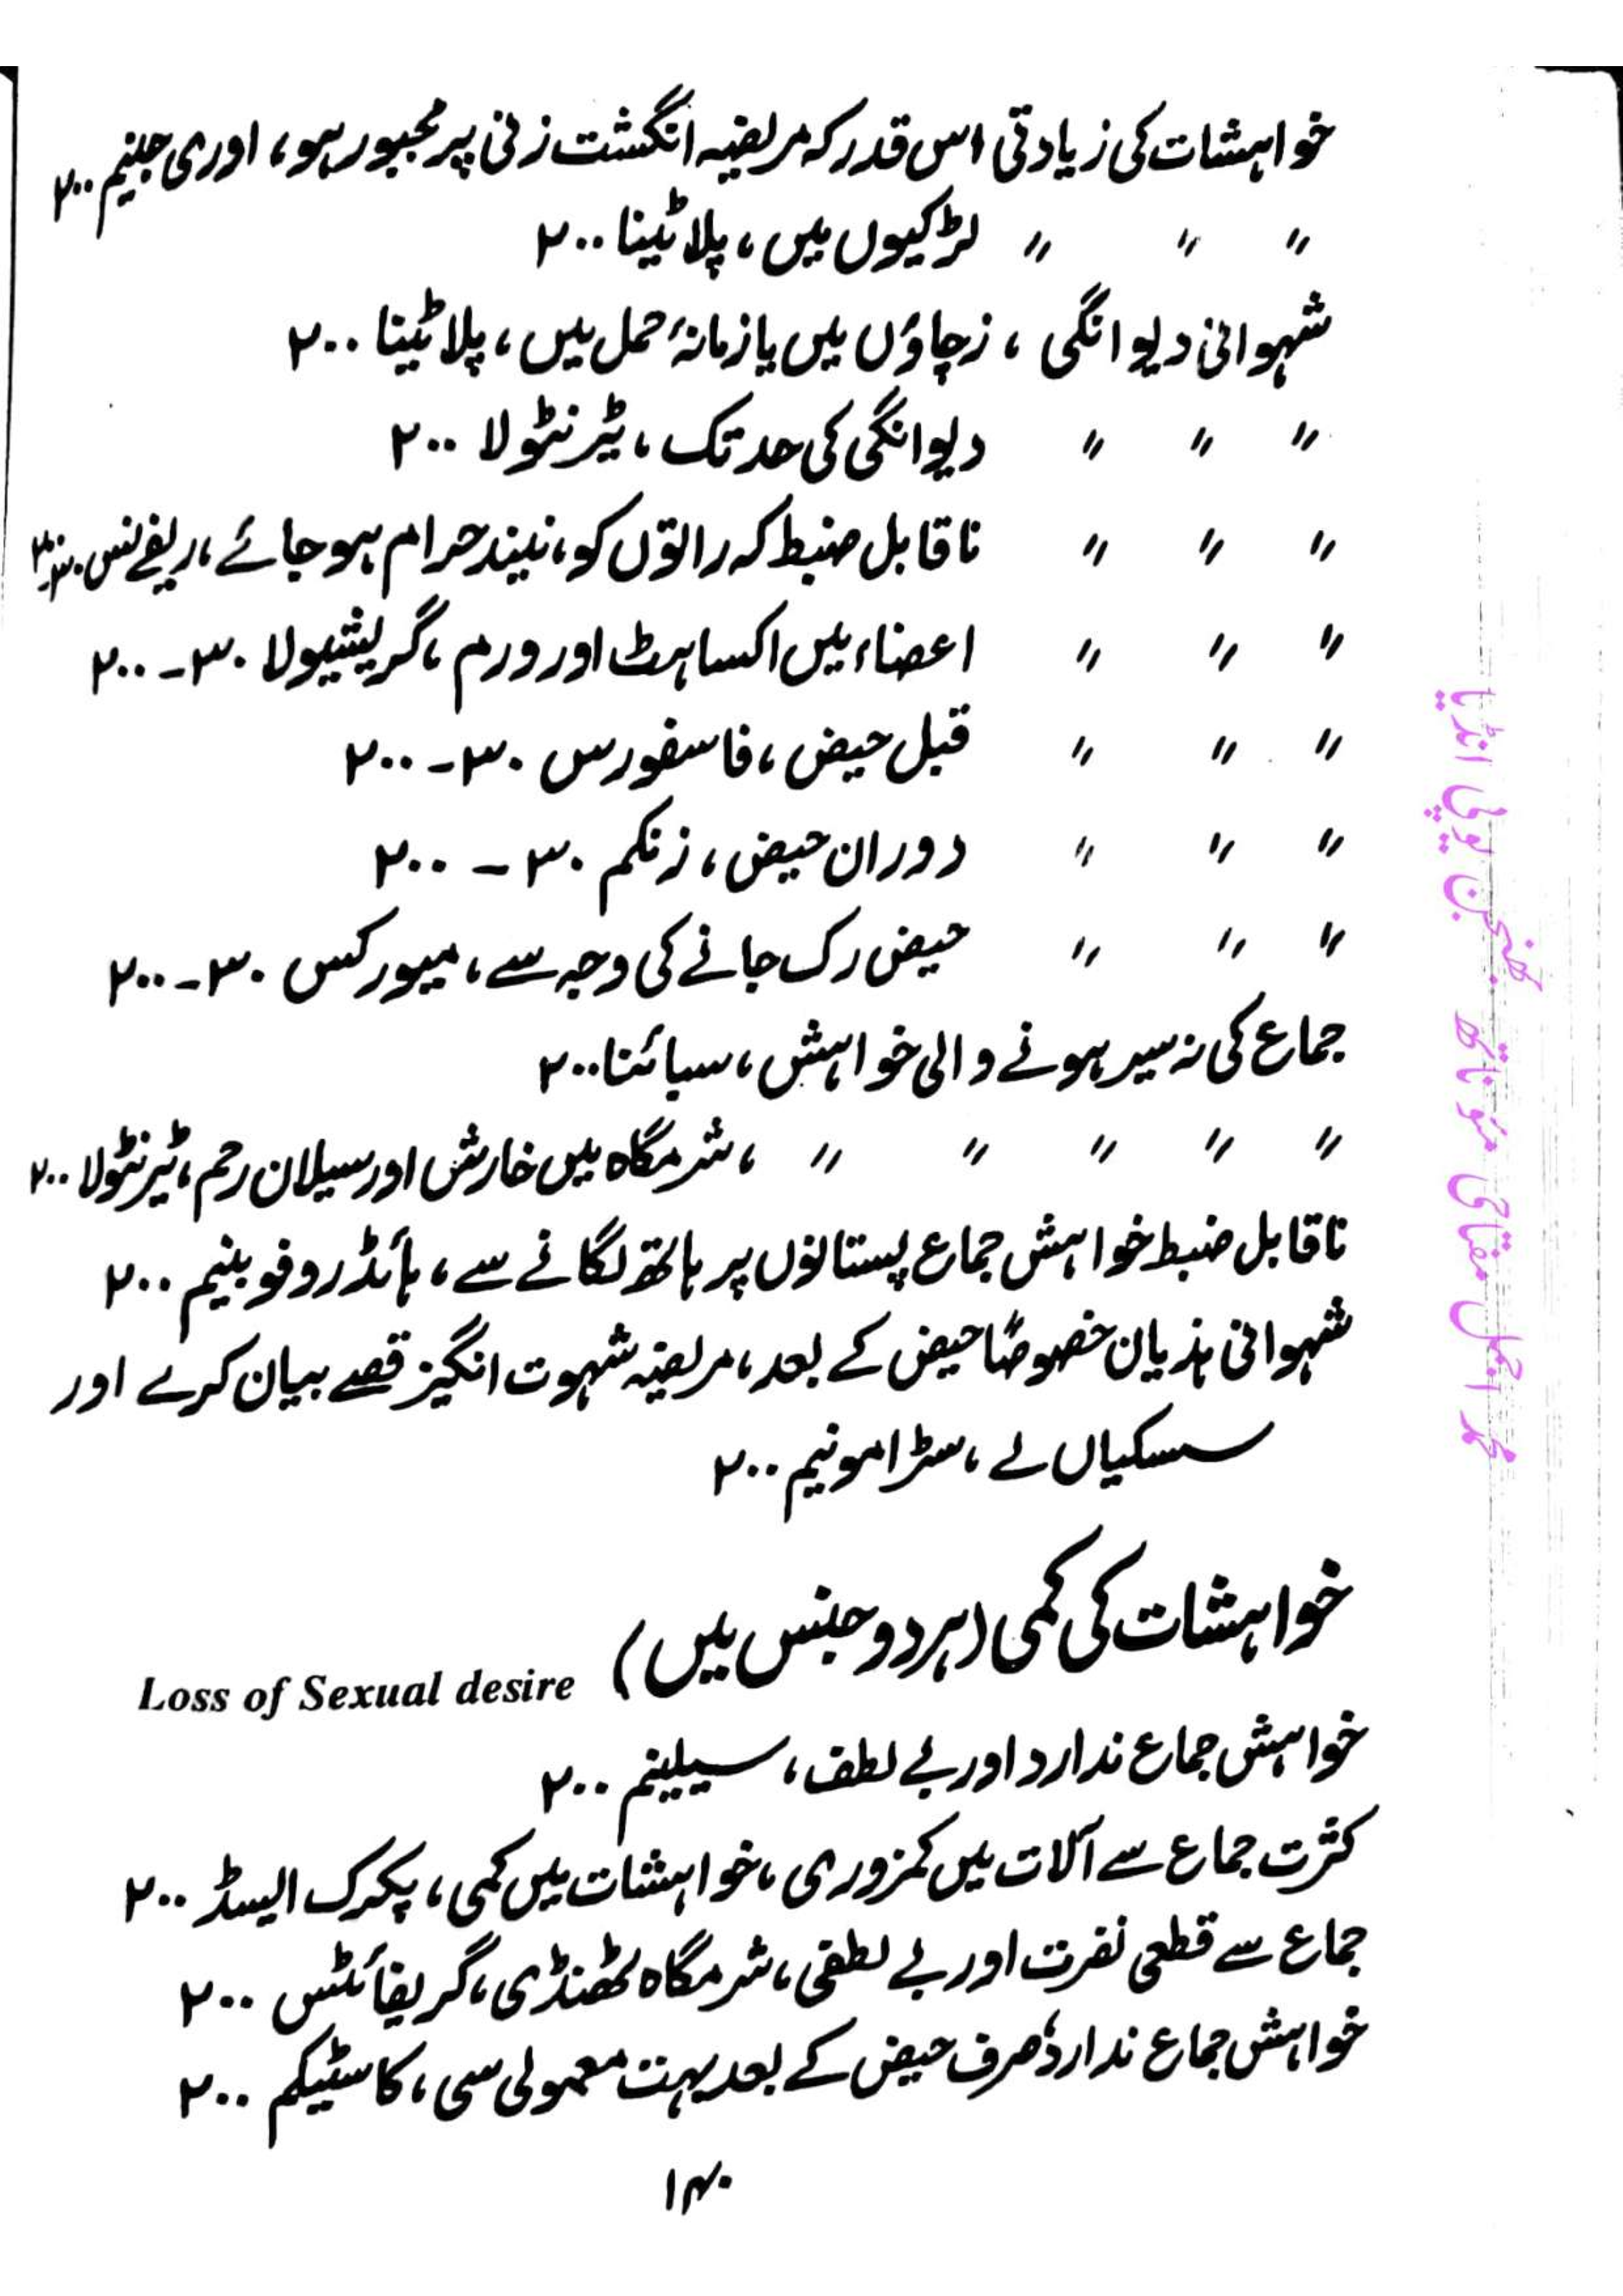 خواہشات کی زیادتی اس قدر کہ مریضہ انگشت زنی پر مجبور ہو، اوری جینم ۲۰۰
〃 〃 〃 لڑکیوں میں، پلاٹینا ۲۰۰
شہوانی دیوانگی، زچاؤں میں یا زمانۂ حمل میں، پلاٹینا ۲۰۰
〃 〃 〃 دیوانگی کی حد تک، ٹیرنٹولا ۲۰۰
〃 〃 〃 ناقابل ضبط کہ راتوں کو، نیند حرام ہو جائے، ریفے نس
〃 〃 〃 اعضاء میں اکساہٹ اور ورم، گریشیولا ۳۰۔۲۰۰
〃 〃 〃 قبل حیض، فاسفورس ۳۰۔۲۰۰
〃 〃 〃 دوران حیض، زنکم ۳۰ ۔ ۲۰۰
〃 〃 〃 حیض رک جانے کی وجہ سے، میورکس ۳۰۔۲۰۰
جماع کی نہ سیر ہونے والی خواہش، سبائنا ۲۰۰
〃 〃 〃 〃 〃، شرمگاہ میں خارش اور سیلان رحم، ٹیرنٹولا ۲۰۰
ناقابل ضبط خواہش جماع پستانوں پر ہاتھ لگانے سے، ہائڈروفوبینم ۲۰۰
شہوانی ہذیان خصوصًا حیض کے بعد، مریضہ شہوت انگیز قصے بیان کرے اور
سسکیاں لے، سٹرامونیم ۲۰۰
خواہشات کی کمی (ہر دو جنس میں) Loss of Sexual desire
خواہش جماع ندارد اور بے لطف، سیلینم ۲۰۰
کثرت جماع سے آلات میں کمزوری، خواہشات میں کمی، پکرک ایسڈ ۲۰۰
جماع سے قطعی نفرت اور بے لطفی، شرمگاہ ٹھنڈی، گریفائٹس ۲۰۰
خواہش جماع ندارد، صرف حیض کے بعد بہت معمولی سی، کاسٹیکم ۲۰۰
۱۴۰
محمد اجمل مفتاحی مئو ناتھ بھنجن یوپی انڈیا